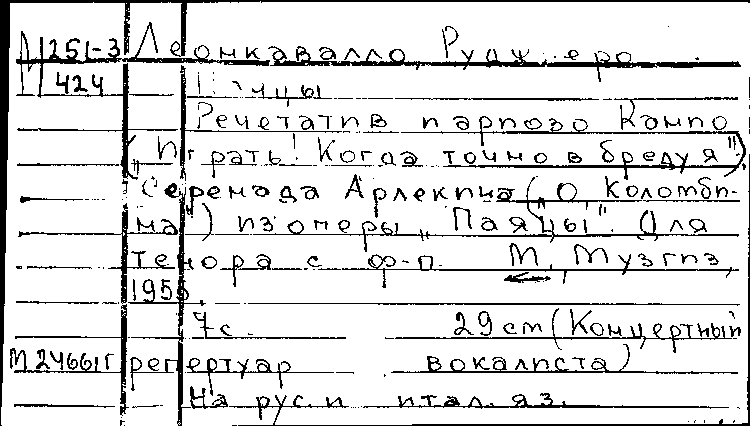 М 251-3 Леонкавалло, Руджеро
424 Паяцы
Речетатив и ариозо Канио
(„Играть! Когда точно в бреду я").
Серенада Арлекина („О, Коломби-
на") из оперы „Паяцы". Для
тенора с ф-п. М., Музгиз,
1955.
7с. 29 см (Концертный
М 24661г репертуар вокалиста)
На рус. и итал. яз.